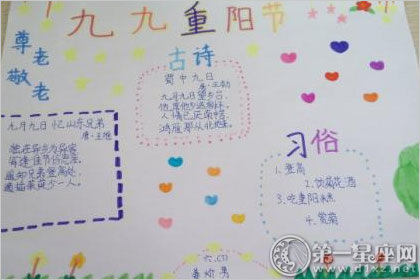 九九重阳节
尊老
敬老
古诗
蜀中九日
唐·王勃
九月九日望乡台,
他席他乡送客杯。
人情已厌南中苦,
鸿雁那从北地来。
九月九日忆山东兄弟
唐·王维
独在异乡为异客
每逢佳节倍思亲。
遥知兄弟登高处,
遍插茱萸少一人。
习俗
1.登高
2.饮菊花酒
3.吃重阳糕
4.赏菊
六.(1)
第一星座网
www.d1xz.net